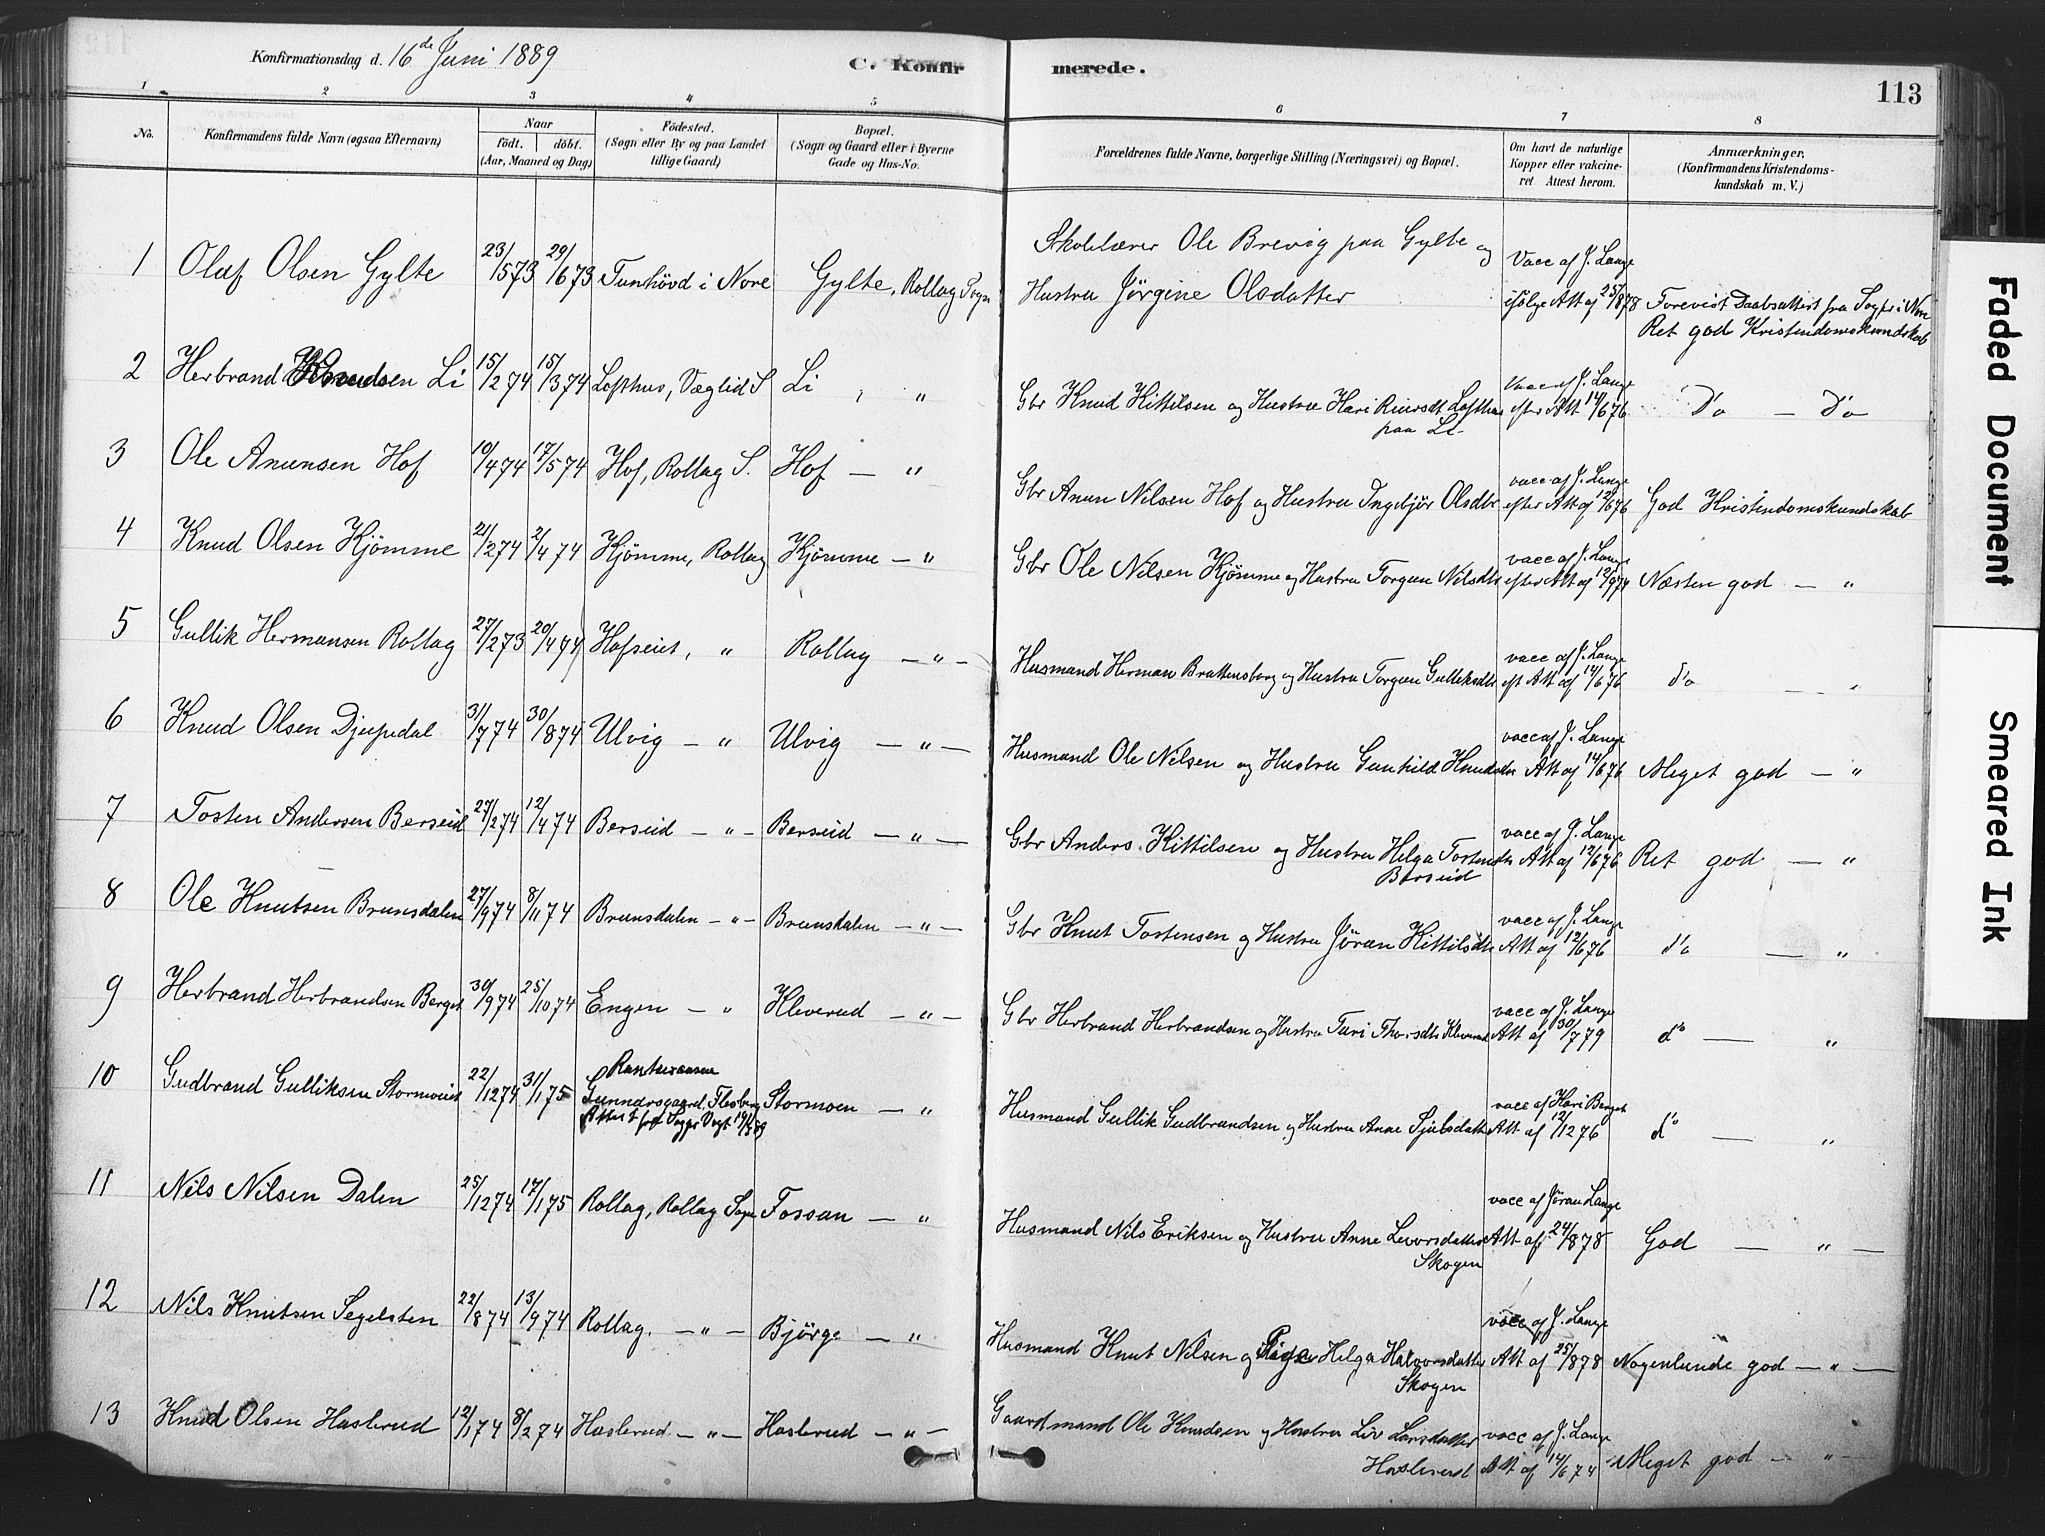 Konfirmationsdag d. 16de Juni 1889
C. Konfirmerede.
113
1 2 3 4 5 6 7 8
No.
Konfirmandens fulde Navn (ogsaa Efternavn)
Naar
født. døbt.
(Aar, Maaned og Dag)
Fødested.
(Sogn eller By og paa Landet
tillige Gaard)
Bopæl.
(Sogn og Gaard eller i Byerne
Gade og Hus-No.
Forældrenes fulde Navne, borgerlige Stilling (Næringsvei) og Bopæl.
Om havt de naturlige
Kopper eller vakcine-
ret Attest herom.
Anmærkninger.
(Konfirmandens Kristendoms-
kundskab m. V.)
1 Olaf Olsen Gylte 23/573 29/673 Tunhövd i Nore Gylte, Rollag Sogn
Skolelærer Ole Brevig paa Gylte og
Hustru Jørgine Olsdatter
Vacc af J. Lange
ifölge Att af 25/878
Forevist Daabsattest fra Sogpr i Nore
Ret god Kristendomskundskab
2 Herbrand Knudsen Li 15/274 15/374 Lofthus, Væglid S Li , "
Gbr Knud Kittilsen og Hustru Kari Reiersdt Lofthus
paa Li
vacc af J. Lange
efter Att 14/676
Do — Do
3 Ole Anunsen Hof 10/474 17/574 Hof, Rollag S. Hof — "
Gbr Anun Nilsen Hof og Hustru Ingebjör Olsdtr
vacc af J. Lange
efter Att af 12/676
God Kristendomskundskab
4 Knud Olsen Kjömme 21/274 2/474 Kjömme, Rollag Kjömme — "
Gbr Ole Nilsen Kjömme og Hustru Torgun Nilsdtr
vacc af J. Lange
efter Att af 12/974
Næsten god — "
5 Gullik Hermansen Rollag 27/273 20/474 Hofseiet, " Rollag — " —
Husmand Herman Brattensborg og Hustru Torgun Gulliksdtr
vacc af J. Lange
eft Att af 14/676
do — "
6 Knud Olsen Djupedal 31/774 30/874 Ulvig — " Ulvig — " —
Husmand Ole Nilsen og Hustru Gunhild Knudsdtr
vacc af J. Lange
Att af 14/676
Meget god — "
7 Tosten Andersen Berseid 27/274 12/474 Berseid — " — Berseid — " —
Gbr Anders Kittilsen og Hustru Helga Tostensdtr
Berseid
vacc af J. Lange
Att af 12/676
Ret god — "
8 Ole Knutsen Brunsdalen 27/974 8/1174 Brunsdalen — " — Brunsdalen — " —
Gbr Knut Tostensen og Hustru Jöran Kittilsdtr
vacc af J. Lange
Att af 12/676
do — "
9 Herbrand Herbrandsen Berget 30/974 25/1074 Engen — " Kleverud — " —
Gbr Herbrand Herbrandsen og Hustru Turi Thorsdtr Kleverud
vacc af J. Lange
Att af 30/779
do — "
10 Gudbrand Gulliksen Stormoeiet 22/1274 31/175
Gunnarsgaard, Flesberg
Attest fra Sogpr Vogt
Stormoen — "
Husmand Gullik Gudbrandsen og Hustru Anne Sjulsdatter
vacc af Kari Berget
Att af 12/1276
do — "
11 Nils Nilsen Dalen 25/1274 17/175 Rollag, Rollag Sogn Fossan — "
Husmand Nils Eriksen og Hustru Anne Levorsdatter
Skogen
vacc af Jöran Lange
Att af 24/878
God — " —
12 Nils Knutsen Segelsten 22/874 13/974 Rollag. — " — Bjørge — "
Husmand Knut Nilsen og Pige Helga Halvorsdatter
Skogen
vacc af J. Lange
Att af 25/878
Nogenlunde god — " —
13 Knud Olsen Haslerud 12/174 8/274 Haslerud — " — Haslerud — " —
Gaardmand Ole Knudsen og Hustru Liv Larsdatter
Haslerud
vacc af J. Lange
Att af 14/674
Meget god — " —
Faded Document
Smeared Ink